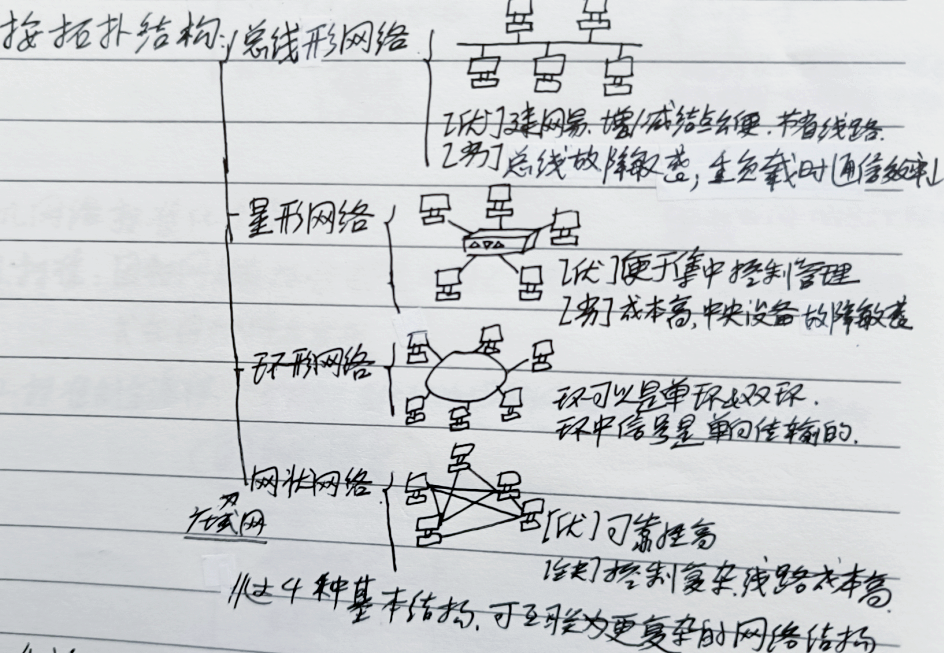 按拓扑结构:
总线形网络
[优]建网易、增/减结点方便、节省线路.
[劣]总线故障敏感,重负载时通信效率↓
星形网络
[优]便于集中控制管理
[劣]成本高,中央设备故障敏感
环形网络
环可以是单环&双环.
环中信号是单向传输的.
网状网络
广域网
[优]可靠性高
[缺]控制复杂,线路成本高.
//这4种基本结构,可互联为更复杂的网络结构